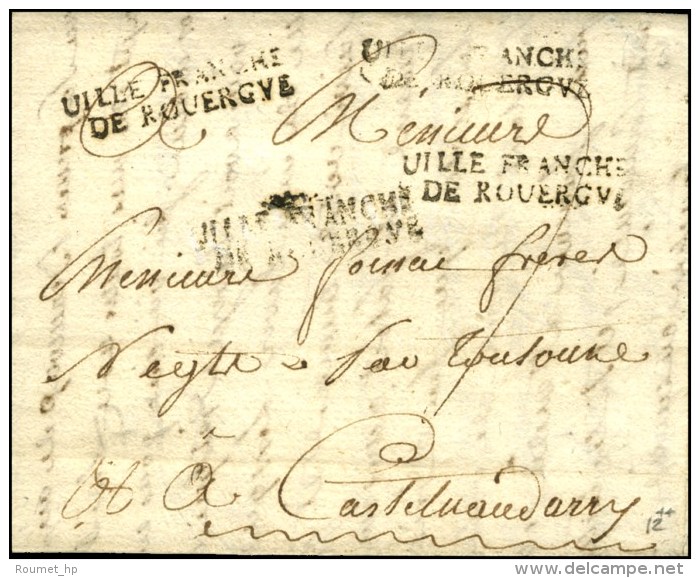 UILLE FRANCHE
DE ROUERGVE
UILLE FRANCHE
DE ROUERGVE
A Messieurs
UILLE FRANCHE
DE ROUERGVE
UILLE FRANCHE
DE ROUERGVE
Messieurs freres
Negts par Toulouse
à Castelnaudarry
12
Roumet_hp
delcampe.net